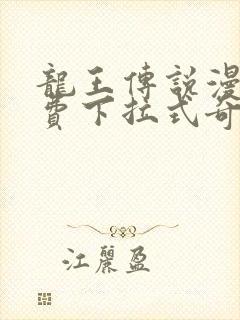 龍王傳說漫
費下拉式奇
江麗盈